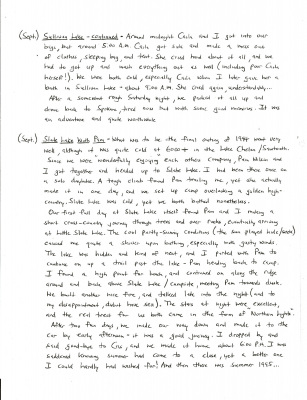 (Sept.) Sullivan Lake - continued - Around midnight Cris and I got into our
bags, but around 5:00 A.M. Cris got sick and made a mess out
of clothes, sleeping bag, and tent. She cried about it all, and we
had to get up and wash everything out as well (including poor Cris
herself!). We were both cold, especially Cris when I later gave her a
bath in Sullivan Lake - about 9:00 A.M. She cried again, understandably...
After a somewhat rough Saturday night, we packed it all up and
drove back to Spokane, tired now but with some good memories. It was
an adventure and quite worthwhile.
(Sept.) Slide Lake With Pam - What was to be the final outing of 1994 went very
well, although it was quite cold at 6000+ in the Lake Chelan/Sawtooth.
Since we were wonderfully enjoying each others company, Pam Wilson and
I got together and headed up to Slide Lake. I had been there once on
a solo dayhike. A tough climb found Pam trailing me, yet she actually
made it in one day, and we set up camp overlooking a golden high-
country. Slide Lake was cold, yet we both bathed nonetheless.
Our first full day at Slide Lake itself found Pam and I making a
short cross-country journey through trees and over rocks eventually arriving
at Little Slide Lake. The cool partly-sunny conditions (the sun played hide/seek)
caused me quite a shiver upon bathing, especially with gusty winds.
The lake was hidden and kind of neat, and I parted with Pam to
continue on up a trail past the lake - Pam heading back to camp.
I found a high point for lunch, and continued on along the ridge
around and back above Slide Lake/campsite, meeting Pam towards dusk.
We built another nice fire, and talked late into the night (and to
my disappointment, didn't have sex). The stars at night were excellent,
and the real treat for us both came in the form of Northern Lights.
After two fun days, we made our way down and made it to the
car by early afternoon - it was a good journey. I dropped by and
said good-bye to Cris, and we made it home about 6:00 P.M. I was
saddened summer had come to a close, yet a better one
I could hardly had wished for! And then there was Summer 1995...